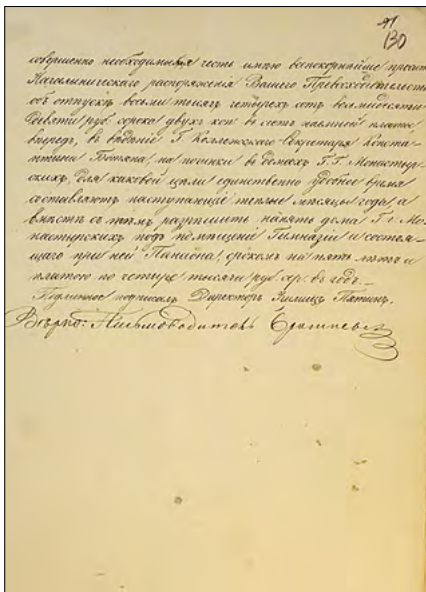 91
130
совершенно необходимымъ честь имѣю всепокорнѣйше просить
Начальническаго распоряженія Вашего Превосходительства
объ отпускѣ восьми тысячъ четырехъ сотъ восмидесяти
девяти руб. сорока двухъ коп. въ счетъ наемной платы
впередъ, въ вѣденіе Г. Коллежскаго Секретаря Конста-
нтина на починки въ домахъ Г.Г. Монастыр-
скихъ, для каковой цѣли единственно удобное время
составляютъ наступающіе теплые мѣсяцы года, а
вмѣстѣ съ тѣмъ разрѣшить нанять дома Гг. Мо-
настырскихъ подъ помѣщеніе Гимназіи и состоя-
щаго при ней Пансіона, срокомъ на пять лѣтъ съ
платою по четыре тысячи руб. сер. въ годъ.
Подлинное подписалъ Директоръ Училищъ Пятинъ.
Вѣрно: Письмоводитель